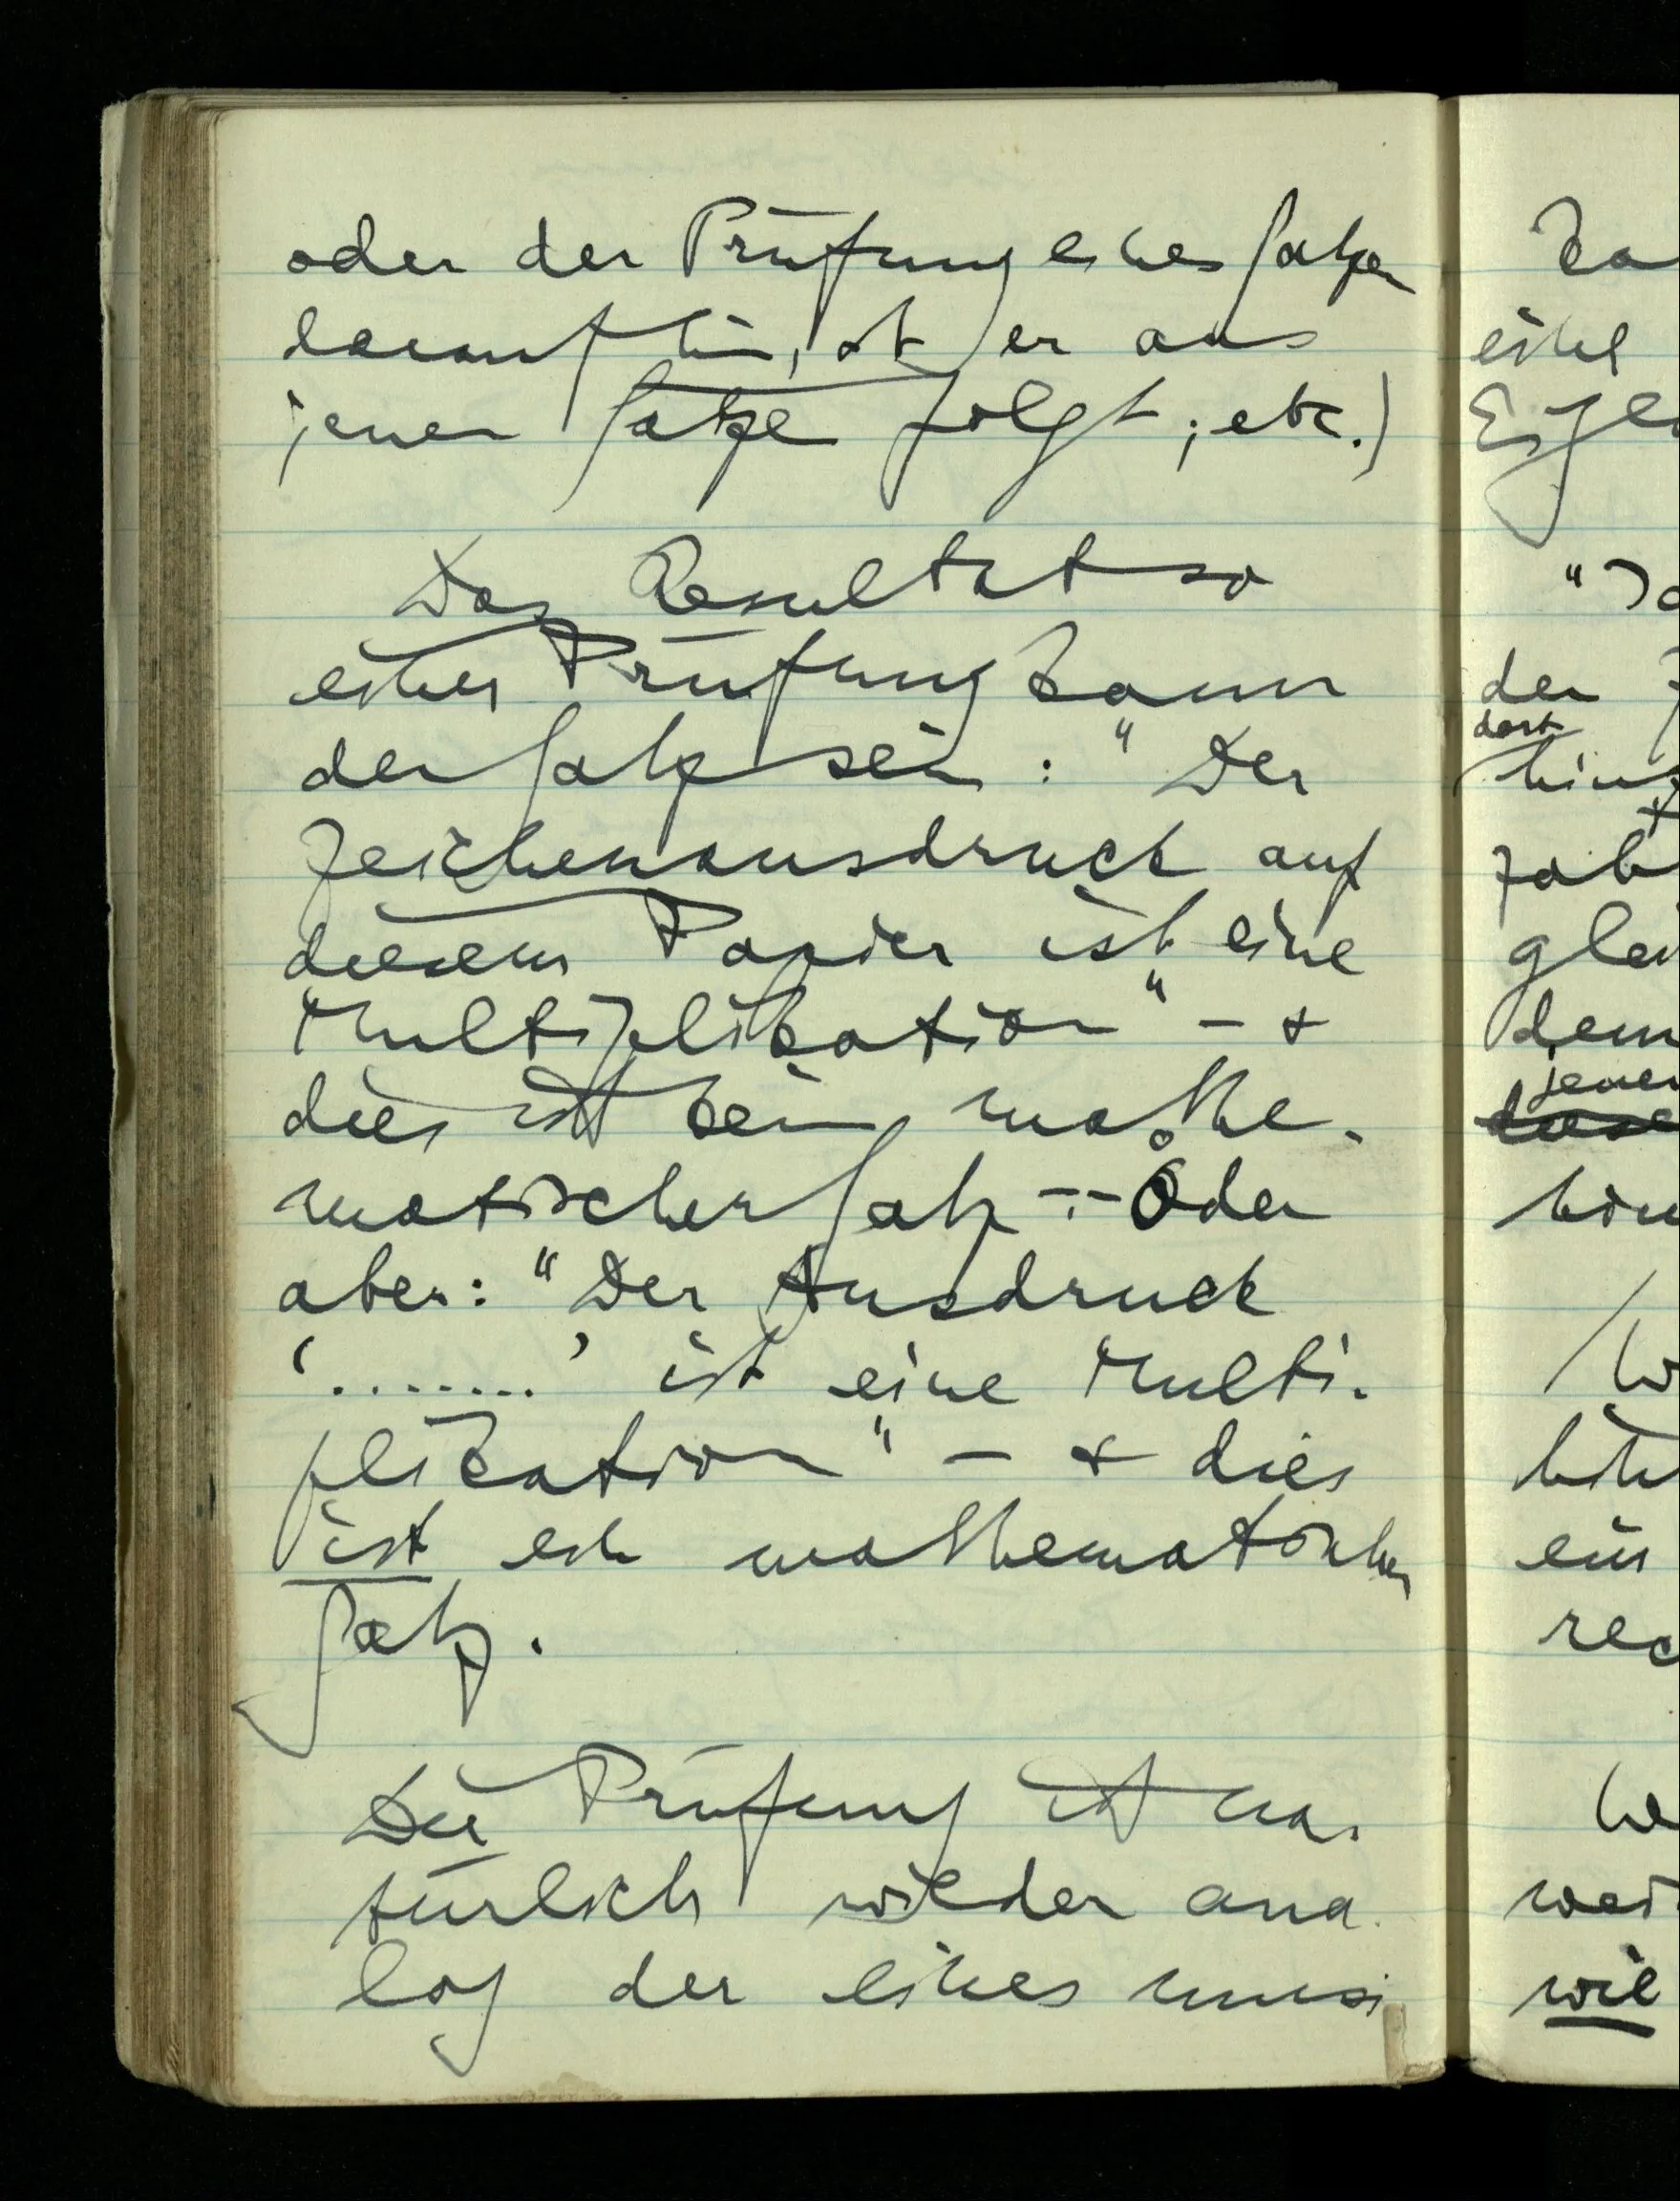 oder der Prüfung eines Satzes
daraufhin, ob er aus
jenem Satze folgt; etc.)
Das Resultat so
einer Prüfung kann
der Satz sein: "Der
Zeichenausdruck auf
diesem Papier ist eine
Multiplikation" – &
dies ist kein mathe-
matischer Satz –. Oder
aber: "Der Ausdruck
'........' ist eine Multi-
plikation" – & dies
ist ein mathematischer
Satz.
Die Prüfung ist na-
türlich wieder ana-
log der eines musi
eine
"Ja
der
dort
glei
dem
jener
ein
rec
wei
wie